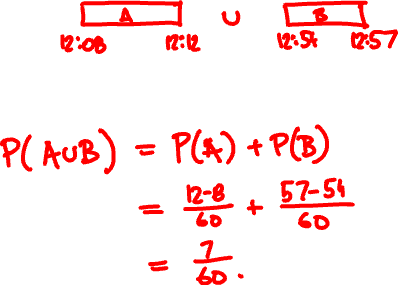 A ∪ B
12:08 12:12 12:54 12:57
P(A∪B) = P(A) + P(B)
= 12-8/60 + 57-54/60
= 7/60.